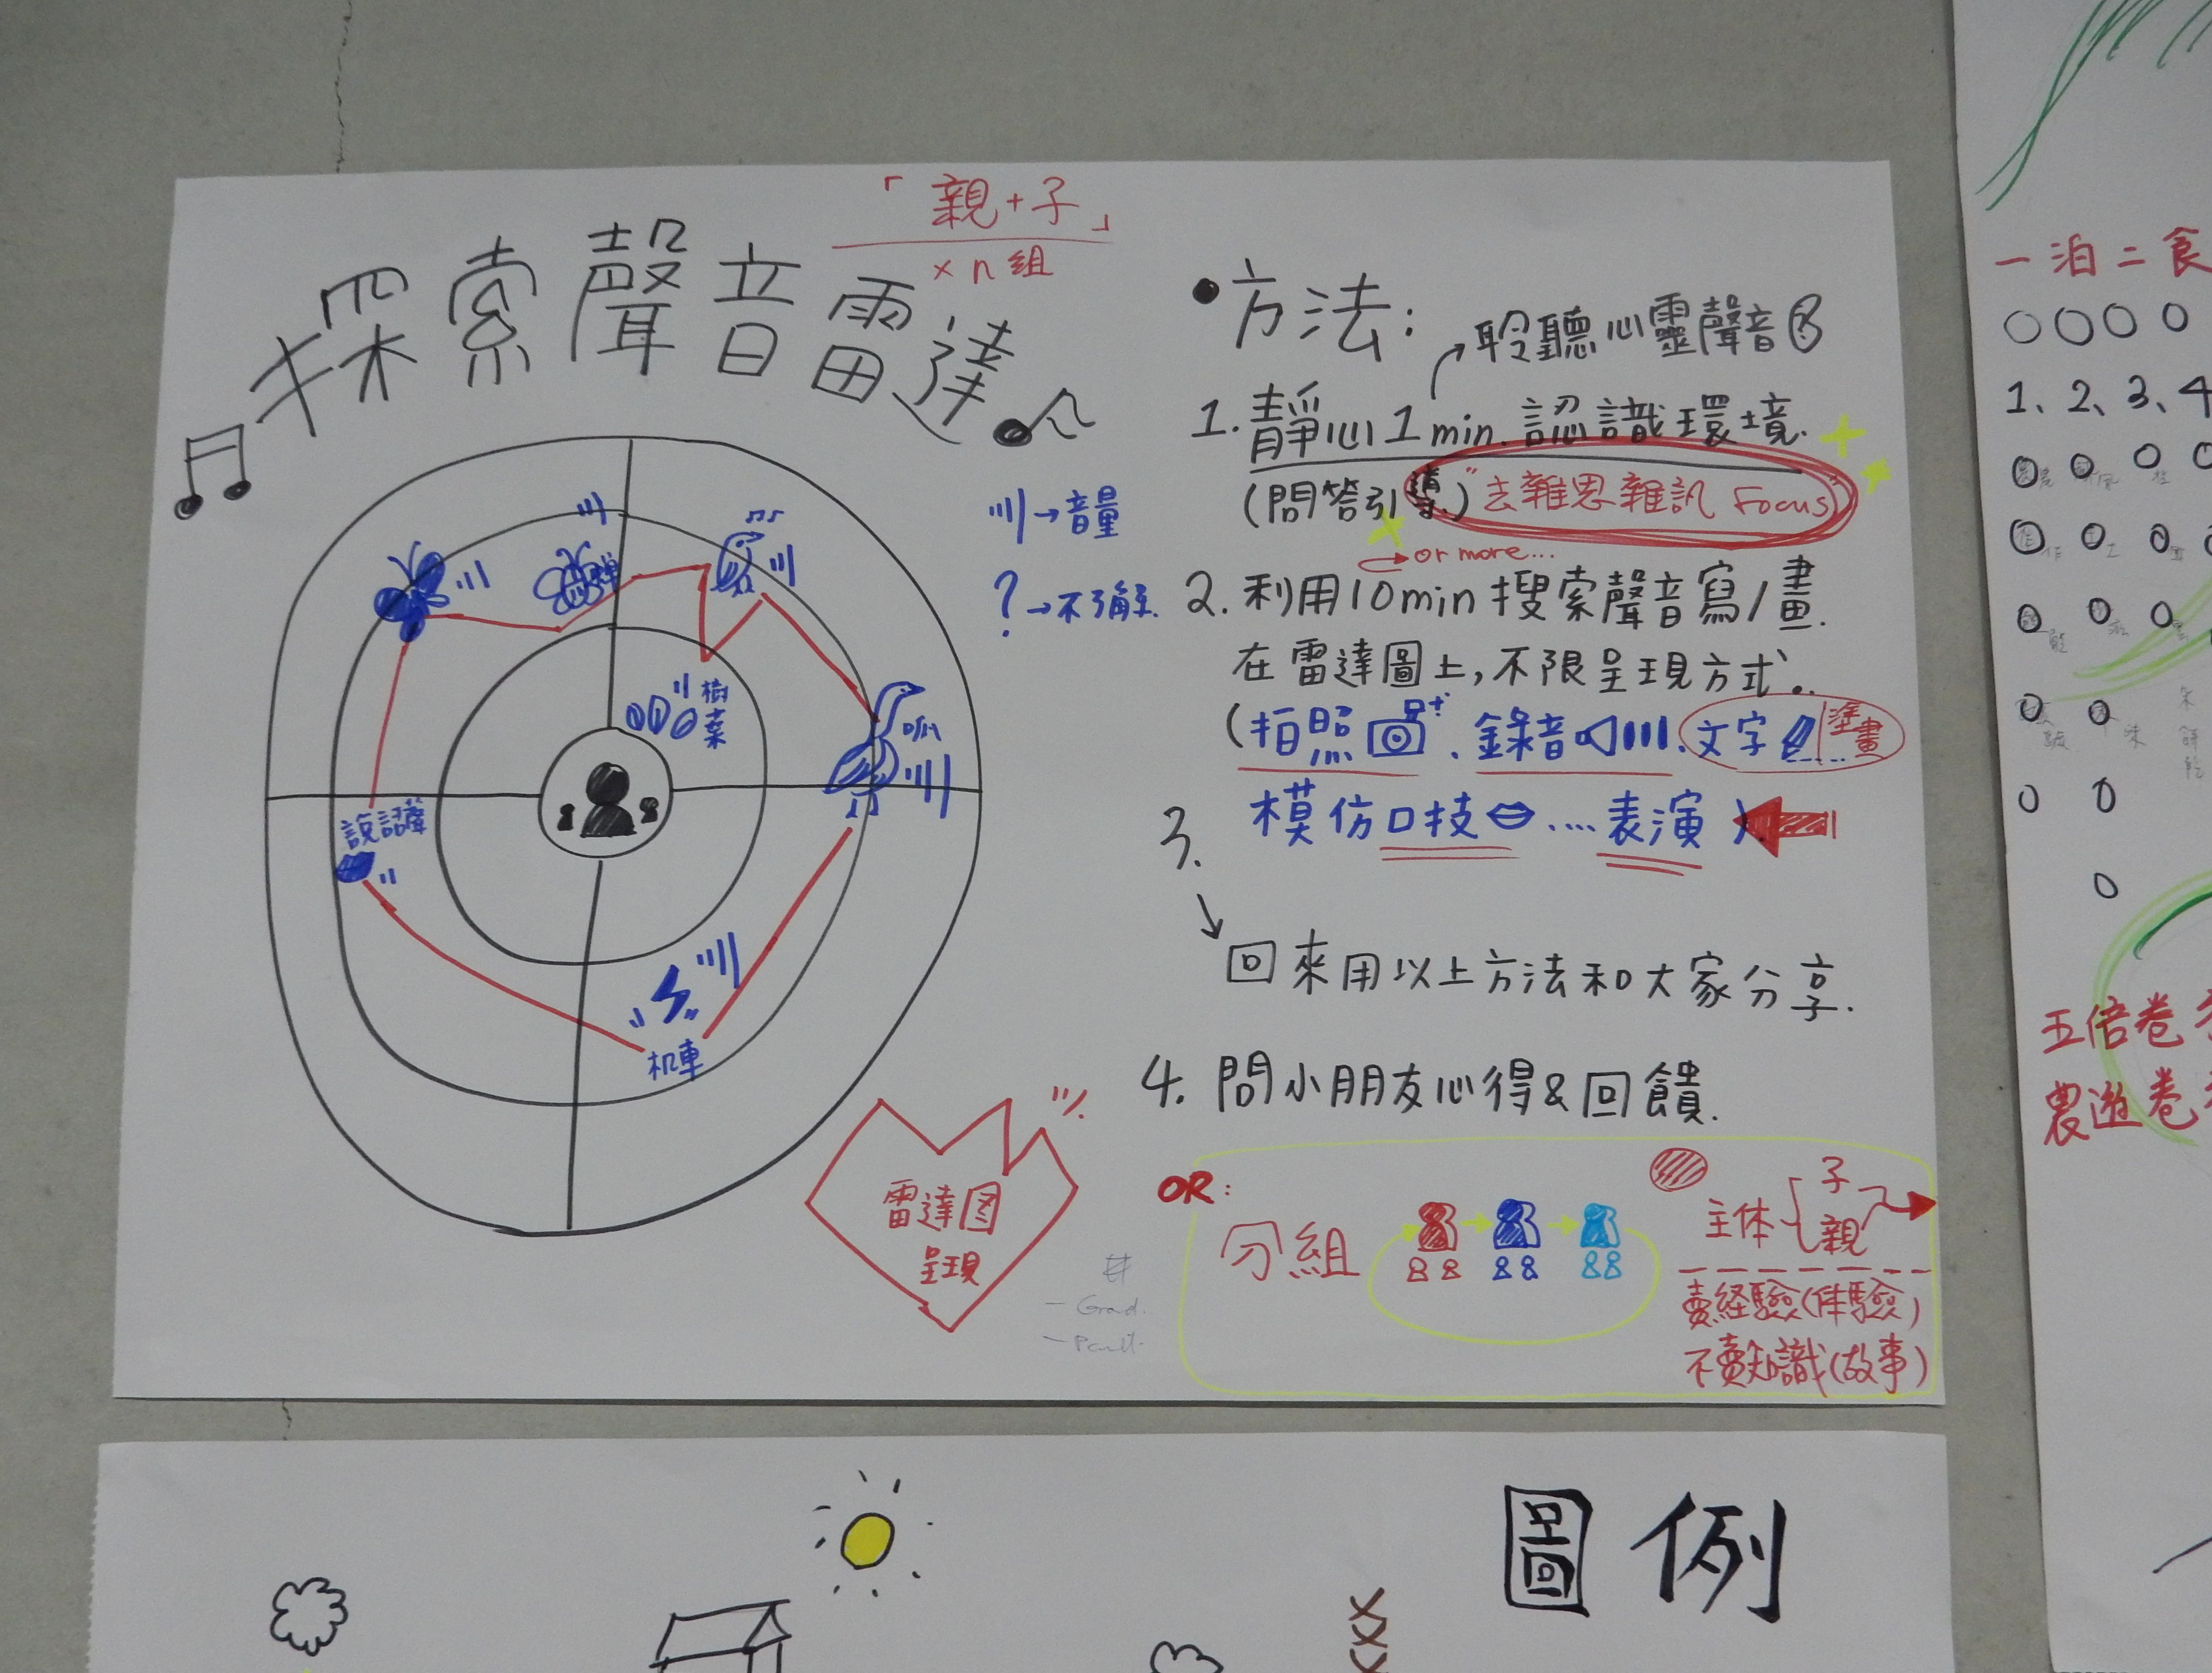 「親+子」
× n 組
探索聲音雷達
川→音量
?→不了解.
樹葉
呱
說話聲
机車
雷達图
呈現
•方法:
聆聽心靈聲音
1. 靜心1 min. 認識環境.
(問答引導) "去雜思雜訊 Focus"
or more...
2. 利用10min搜索聲音寫/畫
在雷達圖上,不限呈現方式.
(拍照 . 錄音 . 文字 塗畫
模仿口技 .... 表演)
3.
回來用以上方法和大家分享.
4. 問小朋友心得&回饋.
OR:
分組
主体 子
親
賣経驗(体驗)
不賣知識(故事)
圖例
一泊二食
1、2、3、4
五倍卷
農遊卷